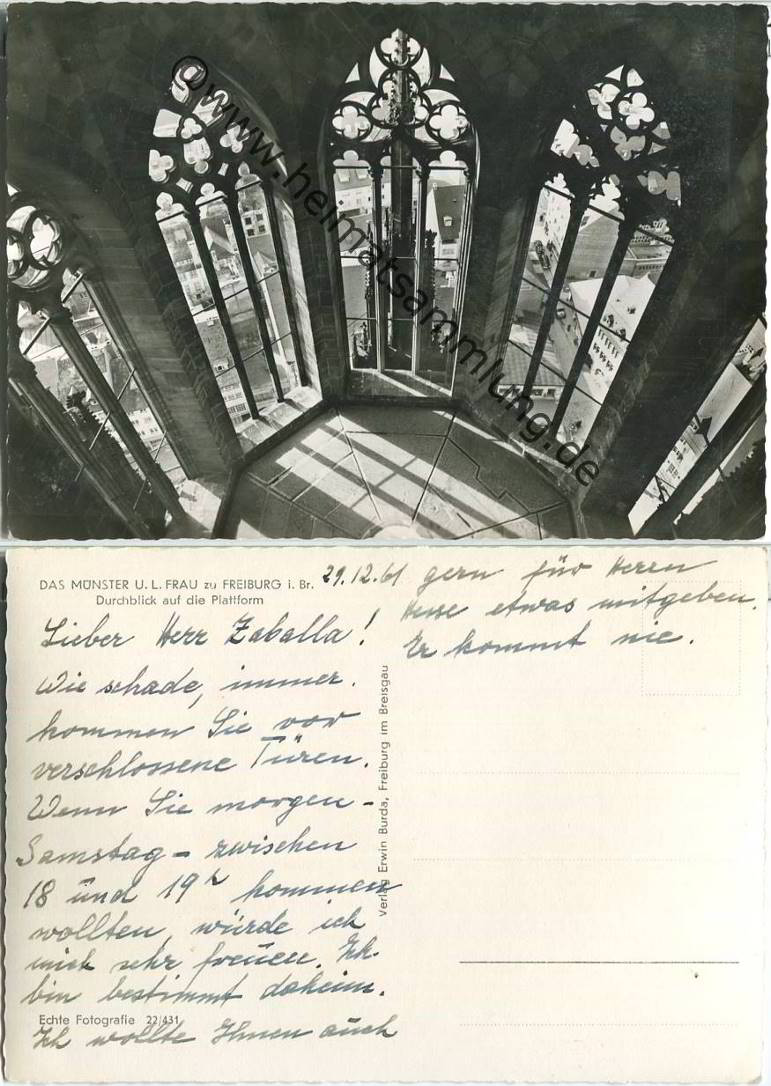 @www.heimatsammlung.de
DAS MÜNSTER U. L. FRAU zu FREIBURG i. Br.
Durchblick auf die Plattform
29.12.61
Lieber Herr Zaballa!
Wie schade, immer
kommen Sie vor
verschlossene Türen.
Wenn Sie morgen -
Samstag - zwischen
18 und 19h kommen
wollten, würde ich
mich sehr freuen. Ich
bin bestimmt daheim.
Ich wollte Ihnen auch
gern für Herrn
Hesse etwas mitgeben.
Er kommt nie.
Verlag Erwin Burda, Freiburg im Breisgau
Echte Fotografie 22/431